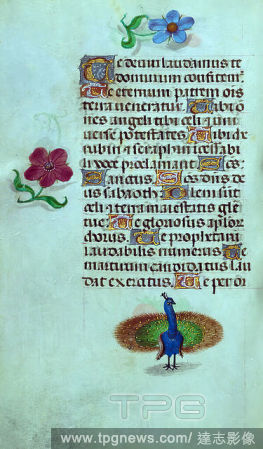 Te deum laudamus te
dominum confitem̃.
Te eternum patrem oi̅s
terra ueneratur. Tibi o
nes angeli tibi celi ⁊ uni
uerse potestates. Tibi che
rubin ⁊ seraphin incessabi
li uoce proclamant. Sc̅s.
Sanctus. Sc̅s dn̅s de
us sabaoth. Pleni sunt
celi ⁊ terra maiestatis glo̅e
tue. Te gloriosus apl̅or
chorus. Te prophetarũ
laudabilis numerus. Te
martirum candidatus lau
dat exercitus. Te per or
TPG
www.tpgnews.com/ 達志影像